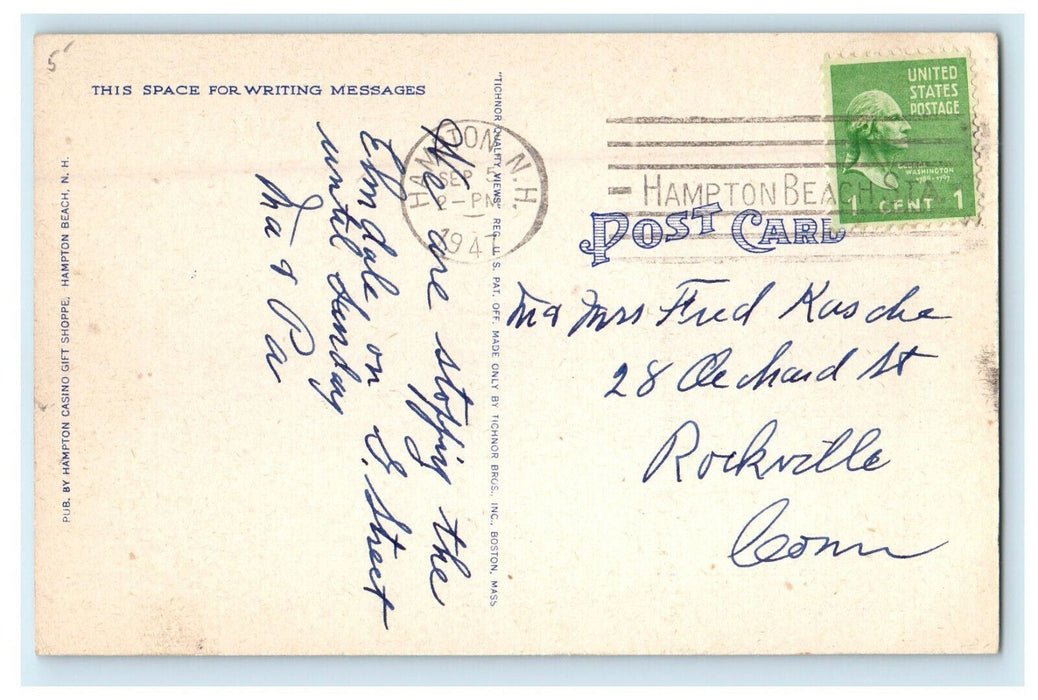 5
THIS SPACE FOR WRITING MESSAGES
We are stoppig the
Elmdale on E. Street
until Sunday
Ma & Pa
PUB. BY HAMPTON CASINO GIFT SHOPPE, HAMPTON BEACH, N. H.
"TICHNOR QUALITY VIEWS" REG. U. S. PAT. OFF. MADE ONLY BY TICHNOR BROS., INC., BOSTON, MASS
HAMPTON, N.H.
SEP 5
2-PM
194
HAMPTON BEACH STA.
UNITED
STATES
POSTAGE
WASHINGTON
1 CENT 1
POST CARD
Mrs Fred Kasche
28 Orchard St
Rockville
Conn